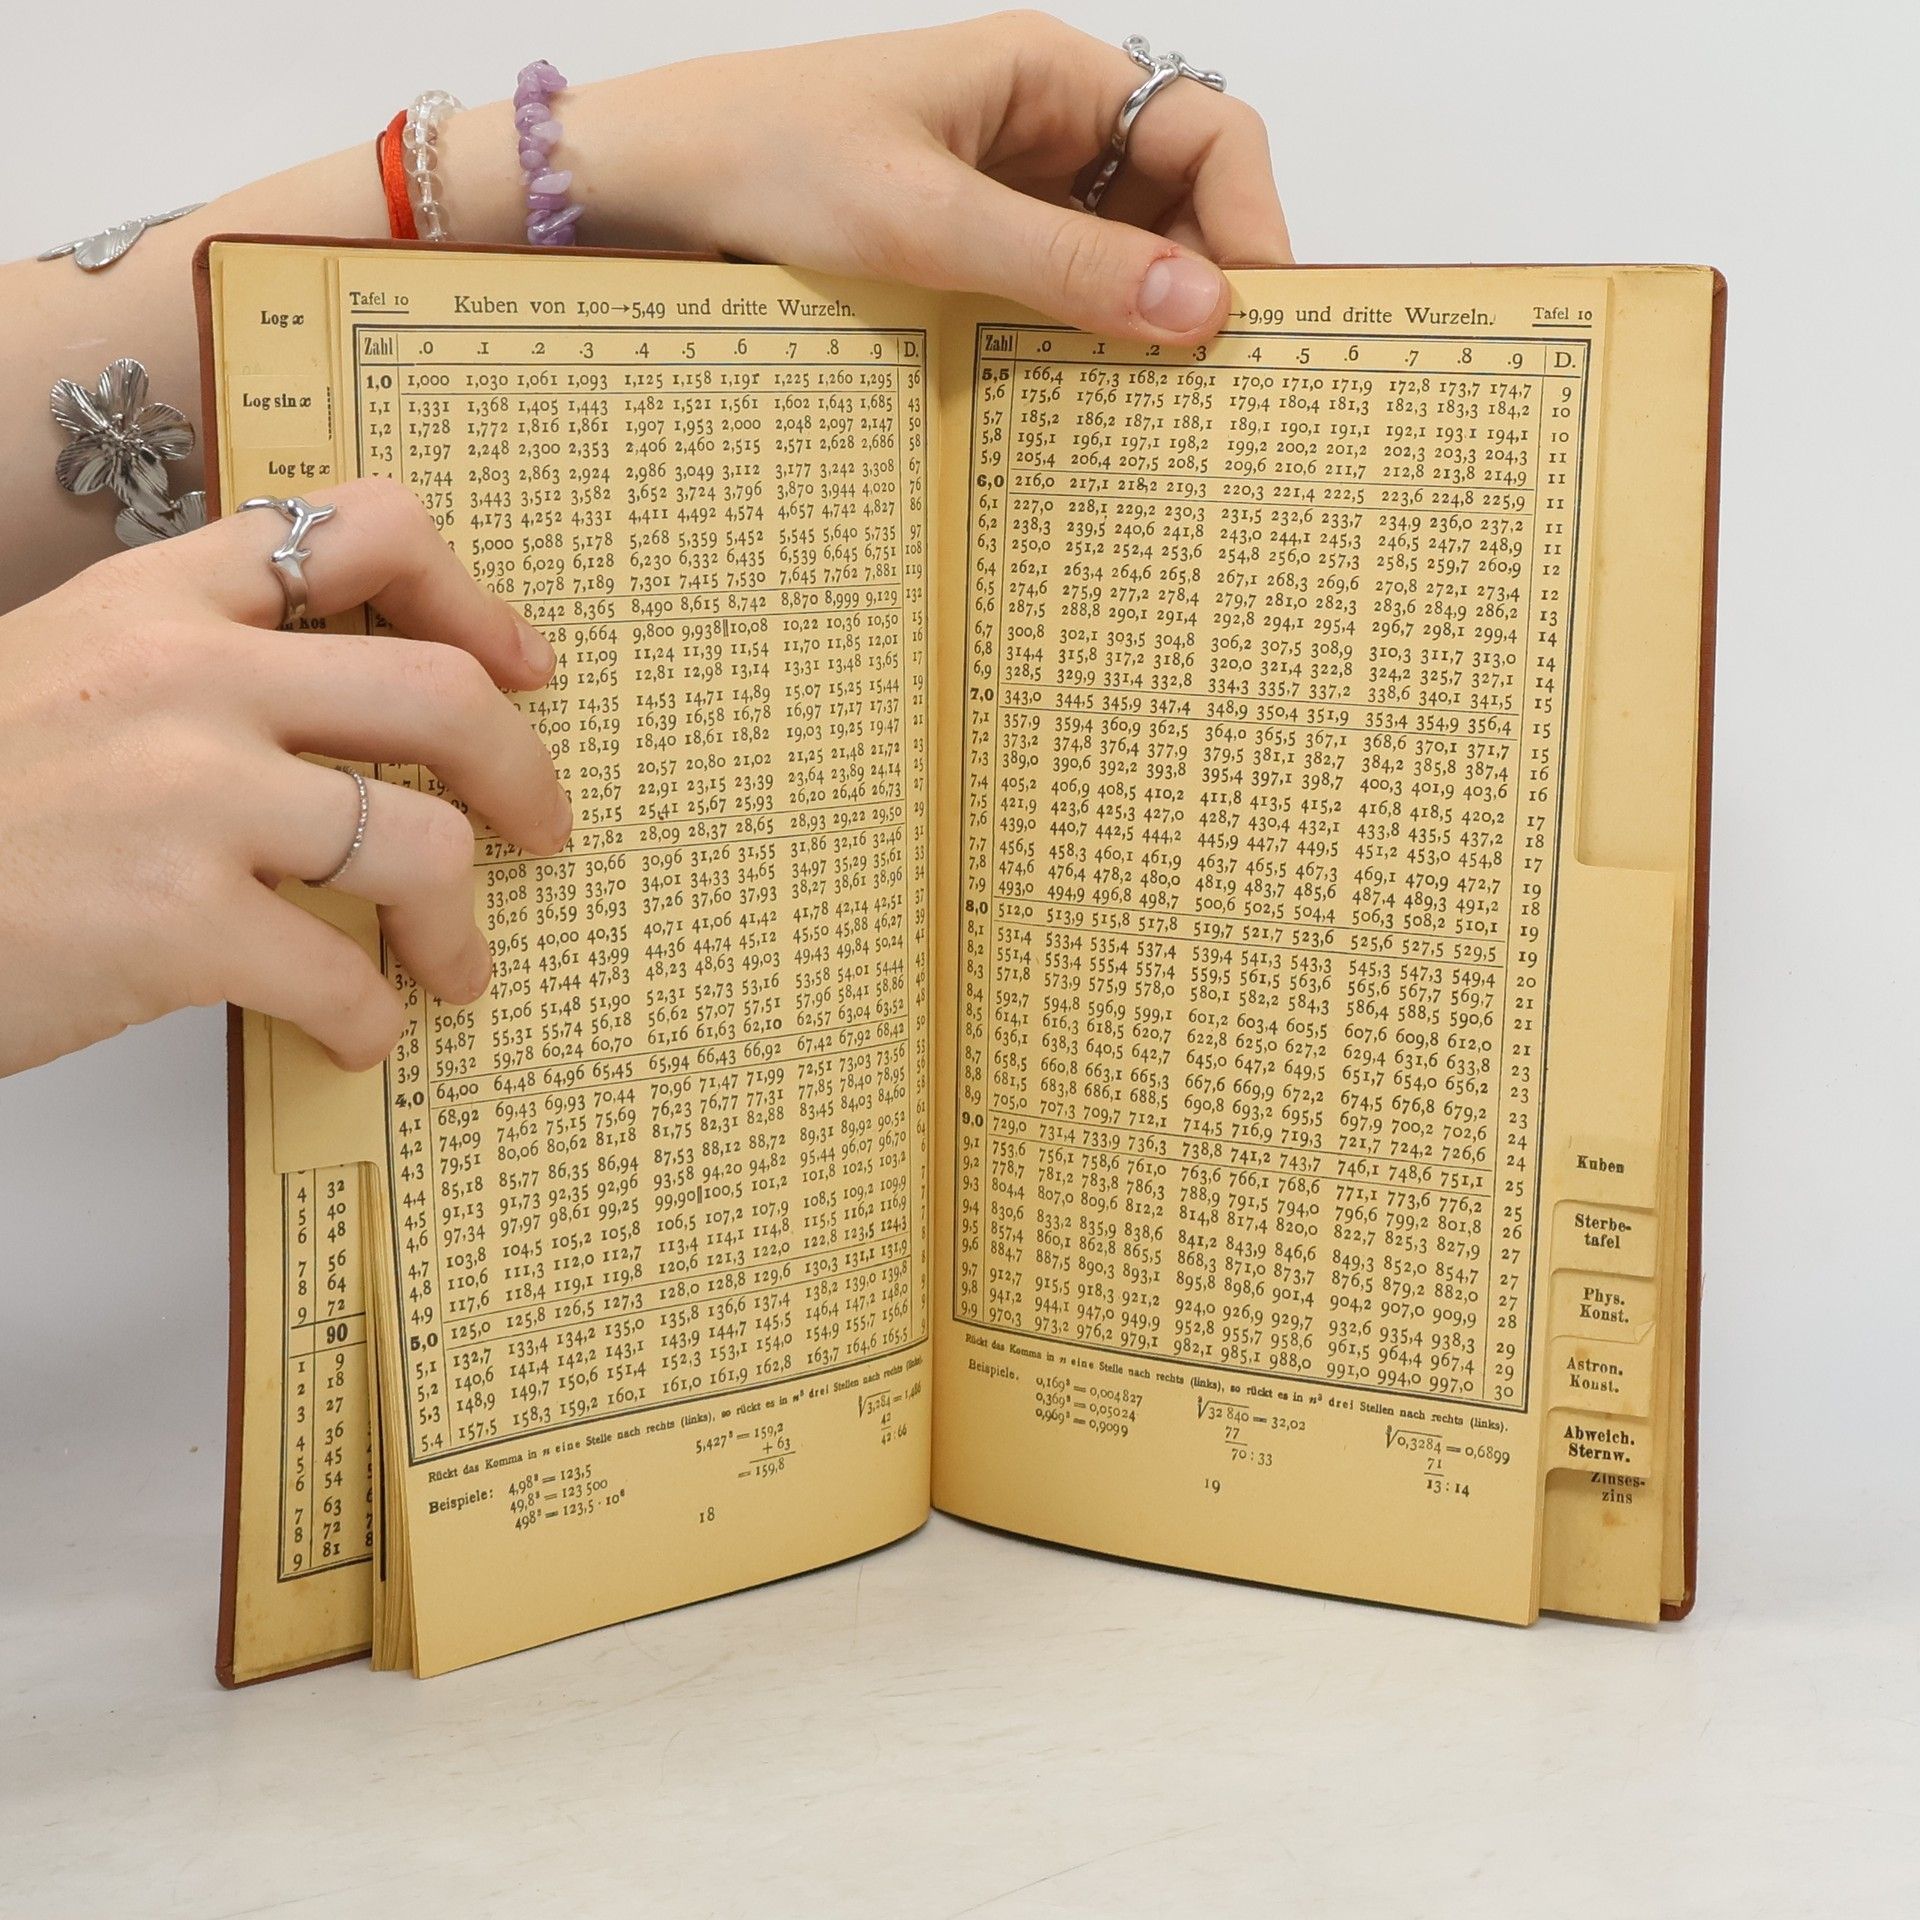 Log x
Log sin x
Log tg x
Tafel 10 Kuben von 1,00→5,49 und dritte Wurzeln.
Zahl .0 .1 .2 .3 .4 .5 .6 .7 .8 .9 D.
1,0 1,000 1,030 1,061 1,093 1,125 1,158 1,191 1,225 1,260 1,295 36
1,1 1,331 1,368 1,405 1,443 1,482 1,521 1,561 1,602 1,643 1,685 43
1,2 1,728 1,772 1,816 1,861 1,907 1,953 2,000 2,048 2,097 2,147 50
1,3 2,197 2,248 2,300 2,353 2,406 2,460 2,515 2,571 2,628 2,686 58
2,744 2,803 2,863 2,924 2,986 3,049 3,112 3,177 3,242 3,308 67
,375 3,443 3,512 3,582 3,652 3,724 3,796 3,870 3,944 4,020 76
096 4,173 4,252 4,331 4,411 4,492 4,574 4,657 4,742 4,827 86
5,000 5,088 5,178 5,268 5,359 5,452 5,545 5,640 5,735 97
5,930 6,029 6,128 6,230 6,332 6,435 6,539 6,645 6,751 108
,968 7,078 7,189 7,301 7,415 7,530 7,645 7,762 7,881 119
8,242 8,365 8,490 8,615 8,742 8,870 8,999 9,129 132
28 9,664 9,800 9,938||10,08 10,22 10,36 10,50 15
11,09 11,24 11,39 11,54 11,70 11,85 12,01 16
49 12,65 12,81 12,98 13,14 13,31 13,48 13,65 17
14,17 14,35 14,53 14,71 14,89 15,07 15,25 15,44 19
16,00 16,19 16,39 16,58 16,78 16,97 17,17 17,37 21
98 18,19 18,40 18,61 18,82 19,03 19,25 19,47 21
12 20,35 20,57 20,80 21,02 21,25 21,48 21,72 23
22,67 22,91 23,15 23,39 23,64 23,89 24,14 25
25,15 25,41 25,67 25,93 26,20 26,46 26,73 27
27,27 27,82 28,09 28,37 28,65 28,93 29,22 29,50 29
30,08 30,37 30,66 30,96 31,26 31,55 31,86 32,16 32,46 31
33,08 33,39 33,70 34,01 34,33 34,65 34,97 35,29 35,61 33
36,26 36,59 36,93 37,26 37,60 37,93 38,27 38,61 38,96 34
39,65 40,00 40,35 40,71 41,06 41,42 41,78 42,14 42,51 37
43,24 43,61 43,99 44,36 44,74 45,12 45,50 45,88 46,27 39
47,05 47,44 47,83 48,23 48,63 49,03 49,43 49,84 50,24 41
,7 50,65 51,06 51,48 51,90 52,31 52,73 53,16 53,58 54,01 54,44 43
3,8 54,87 55,31 55,74 56,18 56,62 57,07 57,51 57,96 58,41 58,86 46
3,9 59,32 59,78 60,24 60,70 61,16 61,63 62,10 62,57 63,04 63,52 48
4,0 64,00 64,48 64,96 65,45 65,94 66,43 66,92 67,42 67,92 68,42 50
4,1 68,92 69,43 69,93 70,44 70,96 71,47 71,99 72,51 73,03 73,56 53
4,2 74,09 74,62 75,15 75,69 76,23 76,77 77,31 77,85 78,40 78,95 56
4,3 79,51 80,06 80,62 81,18 81,75 82,31 82,88 83,45 84,03 84,60 58
4,4 85,18 85,77 86,35 86,94 87,53 88,12 88,72 89,31 89,92 90,52 61
4,5 91,13 91,73 92,35 92,96 93,58 94,20 94,82 95,44 96,07 96,70 64
4,6 97,34 97,97 98,61 99,25 99,90||100,5 101,2 101,8 102,5 103,2 6
4,7 103,8 104,5 105,2 105,8 106,5 107,2 107,9 108,5 109,2 109,9 7
4,8 110,6 111,3 112,0 112,7 113,4 114,1 114,8 115,5 116,2 116,9 7
4,9 117,6 118,4 119,1 119,8 120,6 121,3 122,0 122,8 123,5 124,3 7
5,0 125,0 125,8 126,5 127,3 128,0 128,8 129,6 130,3 131,1 131,9 8
5,1 132,7 133,4 134,2 135,0 135,8 136,6 137,4 138,2 139,0 139,8
5,2 140,6 141,4 142,2 143,1 143,9 144,7 145,5 146,4 147,2 148,0
5,3 148,9 149,7 150,6 151,4 152,3 153,1 154,0 154,9 155,7 156,6
5,4 157,5 158,3 159,2 160,1 161,0 161,9 162,8 163,7 164,6 165,5
Rückt das Komma in n eine Stelle nach rechts (links), so rückt es in n³ drei Stellen nach rechts (links).
Beispiele: 4,98³ = 123,5 5,427³ = 159,2 ∛3,284 = 1,486
49,8³ = 123 500 + 63 42
498³ = 123,5 · 10⁶ = 159,8 42 : 66
18
4 32
5 40
6 48
7 56
8 64
9 72
90
1 9
2 18
3 27
4 36
5 45
6 54
7 63
8 72
9 81
→9,99 und dritte Wurzeln. Tafel 10
Zahl .0 .1 .2 .3 .4 .5 .6 .7 .8 .9 D.
5,5 166,4 167,3 168,2 169,1 170,0 171,0 171,9 172,8 173,7 174,7 9
5,6 175,6 176,6 177,5 178,5 179,4 180,4 181,3 182,3 183,3 184,2 10
5,7 185,2 186,2 187,1 188,1 189,1 190,1 191,1 192,1 193,1 194,1 10
5,8 195,1 196,1 197,1 198,2 199,2 200,2 201,2 202,3 203,3 204,3 11
5,9 205,4 206,4 207,5 208,5 209,6 210,6 211,7 212,8 213,8 214,9 11
6,0 216,0 217,1 218,2 219,3 220,3 221,4 222,5 223,6 224,8 225,9 11
6,1 227,0 228,1 229,2 230,3 231,5 232,6 233,7 234,9 236,0 237,2 11
6,2 238,3 239,5 240,6 241,8 243,0 244,1 245,3 246,5 247,7 248,9 11
6,3 250,0 251,2 252,4 253,6 254,8 256,0 257,3 258,5 259,7 260,9 12
6,4 262,1 263,4 264,6 265,8 267,1 268,3 269,6 270,8 272,1 273,4 12
6,5 274,6 275,9 277,2 278,4 279,7 281,0 282,3 283,6 284,9 286,2 13
6,6 287,5 288,8 290,1 291,4 292,8 294,1 295,4 296,7 298,1 299,4 14
6,7 300,8 302,1 303,5 304,8 306,2 307,5 308,9 310,3 311,7 313,0 14
6,8 314,4 315,8 317,2 318,6 320,0 321,4 322,8 324,2 325,7 327,1 14
6,9 328,5 329,9 331,4 332,8 334,3 335,7 337,2 338,6 340,1 341,5 15
7,0 343,0 344,5 345,9 347,4 348,9 350,4 351,9 353,4 354,9 356,4 15
7,1 357,9 359,4 360,9 362,5 364,0 365,5 367,1 368,6 370,1 371,7 15
7,2 373,2 374,8 376,4 377,9 379,5 381,1 382,7 384,2 385,8 387,4 16
7,3 389,0 390,6 392,2 393,8 395,4 397,1 398,7 400,3 401,9 403,6 16
7,4 405,2 406,9 408,5 410,2 411,8 413,5 415,2 416,8 418,5 420,2 17
7,5 421,9 423,6 425,3 427,0 428,7 430,4 432,1 433,8 435,5 437,2 18
7,6 439,0 440,7 442,5 444,2 445,9 447,7 449,5 451,2 453,0 454,8 17
7,7 456,5 458,3 460,1 461,9 463,7 465,5 467,3 469,1 470,9 472,7 19
7,8 474,6 476,4 478,2 480,0 481,9 483,7 485,6 487,4 489,3 491,2 18
7,9 493,0 494,9 496,8 498,7 500,6 502,5 504,4 506,3 508,2 510,1 19
8,0 512,0 513,9 515,8 517,8 519,7 521,7 523,6 525,6 527,5 529,5 19
8,1 531,4 533,4 535,4 537,4 539,4 541,3 543,3 545,3 547,3 549,4 20
8,2 551,4 553,4 555,4 557,4 559,5 561,5 563,6 565,6 567,7 569,7 21
8,3 571,8 573,9 575,9 578,0 580,1 582,2 584,3 586,4 588,5 590,6 21
8,4 592,7 594,8 596,9 599,1 601,2 603,4 605,5 607,6 609,8 612,0 21
8,5 614,1 616,3 618,5 620,7 622,8 625,0 627,2 629,4 631,6 633,8 23
8,6 636,1 638,3 640,5 642,7 645,0 647,2 649,5 651,7 654,0 656,2 23
8,7 658,5 660,8 663,1 665,3 667,6 669,9 672,2 674,5 676,8 679,2 23
8,8 681,5 683,8 686,1 688,5 690,8 693,2 695,5 697,9 700,2 702,6 24
8,9 705,0 707,3 709,7 712,1 714,5 716,9 719,3 721,7 724,2 726,6 24
9,0 729,0 731,4 733,9 736,3 738,8 741,2 743,7 746,1 748,6 751,1 25
9,1 753,6 756,1 758,6 761,0 763,6 766,1 768,6 771,1 773,6 776,2 25
9,2 778,7 781,2 783,8 786,3 788,9 791,5 794,0 796,6 799,2 801,8 26
9,3 804,4 807,0 809,6 812,2 814,8 817,4 820,0 822,7 825,3 827,9 27
9,4 830,6 833,2 835,9 838,6 841,2 843,9 846,6 849,3 852,0 854,7 27
9,5 857,4 860,1 862,8 865,5 868,3 871,0 873,7 876,5 879,2 882,0 27
9,6 884,7 887,5 890,3 893,1 895,8 898,6 901,4 904,2 907,0 909,9 28
9,7 912,7 915,5 918,3 921,2 924,0 926,9 929,7 932,6 935,4 938,3 29
9,8 941,2 944,1 947,0 949,9 952,8 955,7 958,6 961,5 964,4 967,4 29
9,9 970,3 973,2 976,2 979,1 982,1 985,1 988,0 991,0 994,0 997,0 30
Rückt das Komma in n eine Stelle nach rechts (links), so rückt es in n³ drei Stellen nach rechts (links).
Beispiele. 0,169³ = 0,004827 ∛32 840 = 32,02 ∛0,3284 = 0,6899
0,369³ = 0,05024 77 71
0,969³ = 0,9099 70 : 33 13 : 14
19
Kuben
Sterbe-
tafel
Phys.
Konst.
Astron.
Konst.
Abweich.
Sternw.
Zinses-
zins